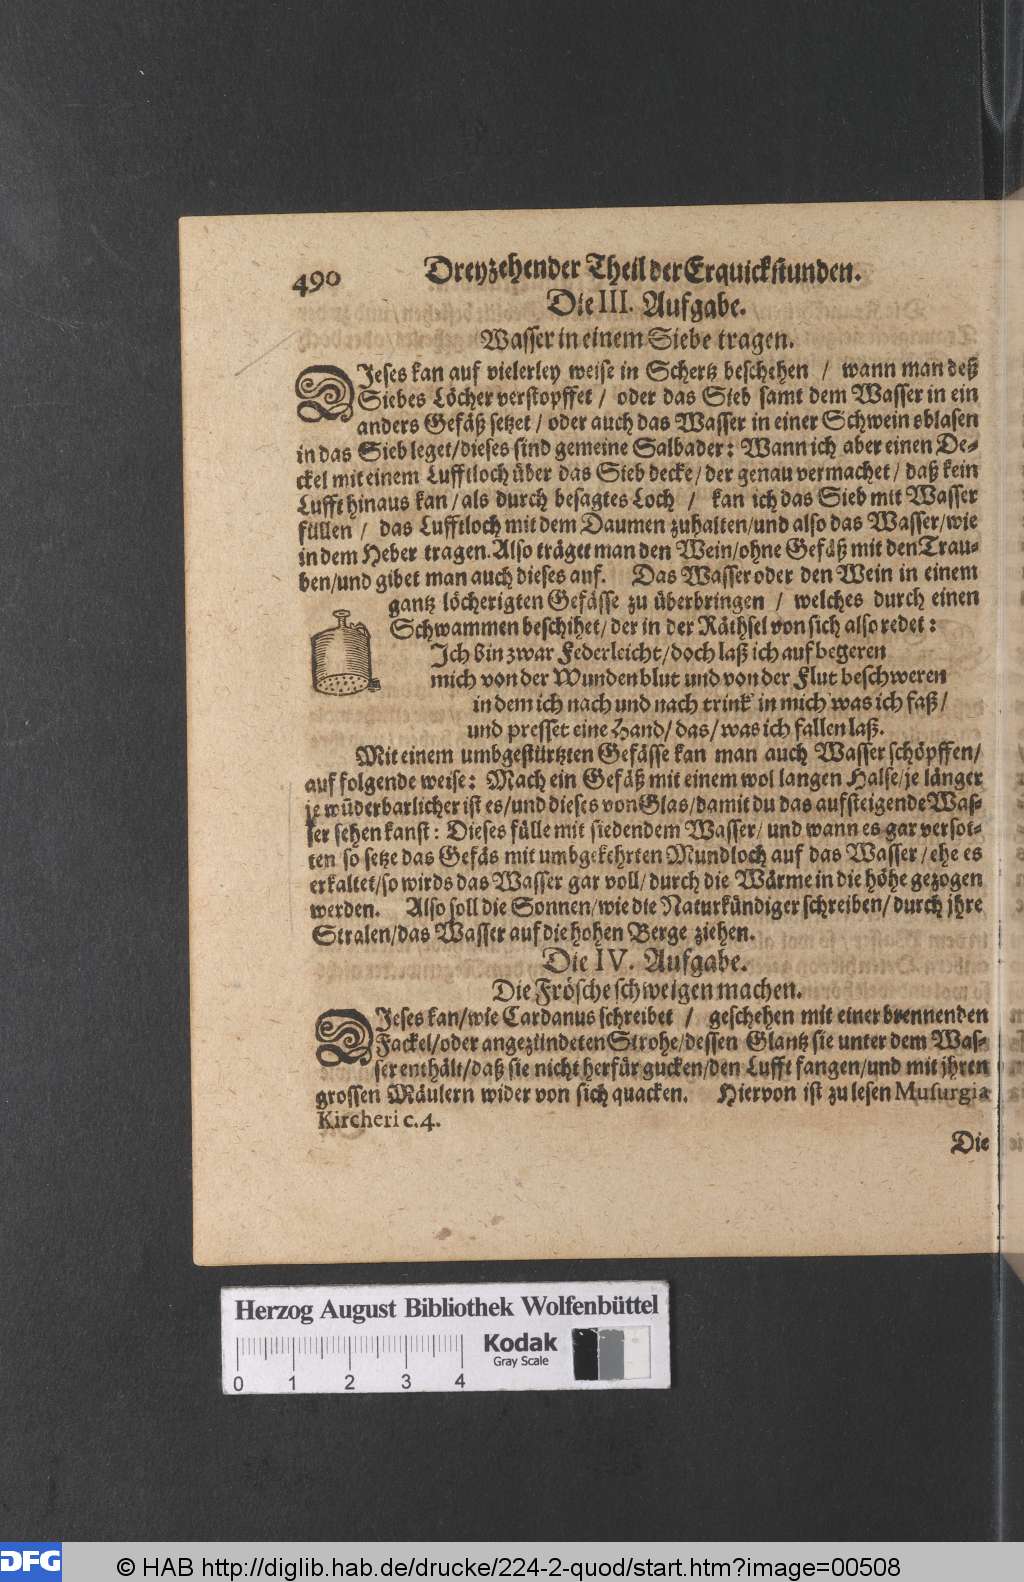 490 Dreyzehender Theil der Erquickstunden.
Die III. Aufgabe.
Wasser in einem Siebe tragen.
DIeses kan auf vielerley weise in Schertz beschehen / wann man deß
Siebes Löcher verstopffet / oder das Sieb samt dem Wasser in ein
anders Gefäß setzet / oder auch das Wasser in einer Schweinsblasen
in das Sieb leget/dieses sind gemeine Salbader: Wann ich aber einen De-
ckel mit einem Lufftloch über das Sieb decke/der genau vermachet/daß kein
Lufft hinaus kan/als durch besagtes Loch / kan ich das Sieb mit Wasser
füllen / das Lufftloch mit dem Daumen zuhalten/und also das Wasser/wie
in dem Heber tragen. Also träget man den Wein/ohne Gefäß mit den Trau-
ben/und gibet man auch dieses auf. Das Wasser oder den Wein in einem
gantz löcherigten Gefässe zu überbringen / welches durch einen
Schwammen beschihet/der in der Räthsel von sich also redet:
Ich bin zwar Federleicht/doch laß ich auf begeren
mich von der Wunden blut und von der Flut beschweren
in dem ich nach und nach trink' in mich was ich faß/
und presset eine Hand/das/was ich fallen laß.
Mit einem umbgestürtzten Gefässe kan man auch Wasser schöpffen/
auf folgende weise: Mach ein Gefäß mit einem wol langen Halse/je länger
je wũderbarlicher ist es/und dieses von Glas/damit du das aufsteigende Was-
ser sehen kanst: Dieses fülle mit siedendem Wasser/und wann es gar versot-
ten so setze das Gefäs mit umbgekehrten Mundloch auf das Wasser/ehe es
erkaltet/so wirds das Wasser gar voll/durch die Wärme in die höhe gezogen
werden. Also soll die Sonnen/wie die Naturkündiger schreiben/durch jhre
Stralen/das Wasser auf die hohen Berge ziehen.
Die IV. Aufgabe.
Die Frösche schweigen machen.
DIeses kan/wie Cardanus schreibet / geschehen mit einer brennenden
Fackel/oder angezündeten Strohe/dessen Glantz sie unter dem Was-
ser enthält/daß sie nicht herfür gucken/den Lufft fangen/und mit jhren
grossen Mäulern wider von sich quacken. Hiervon ist zu lesen Musurgia
Kircheri c.4.
Die
Herzog August Bibliothek Wolfenbüttel
Kodak
Gray Scale
0 1 2 3 4
DFG © HAB http://diglib.hab.de/drucke/224-2-quod/start.htm?image=00508